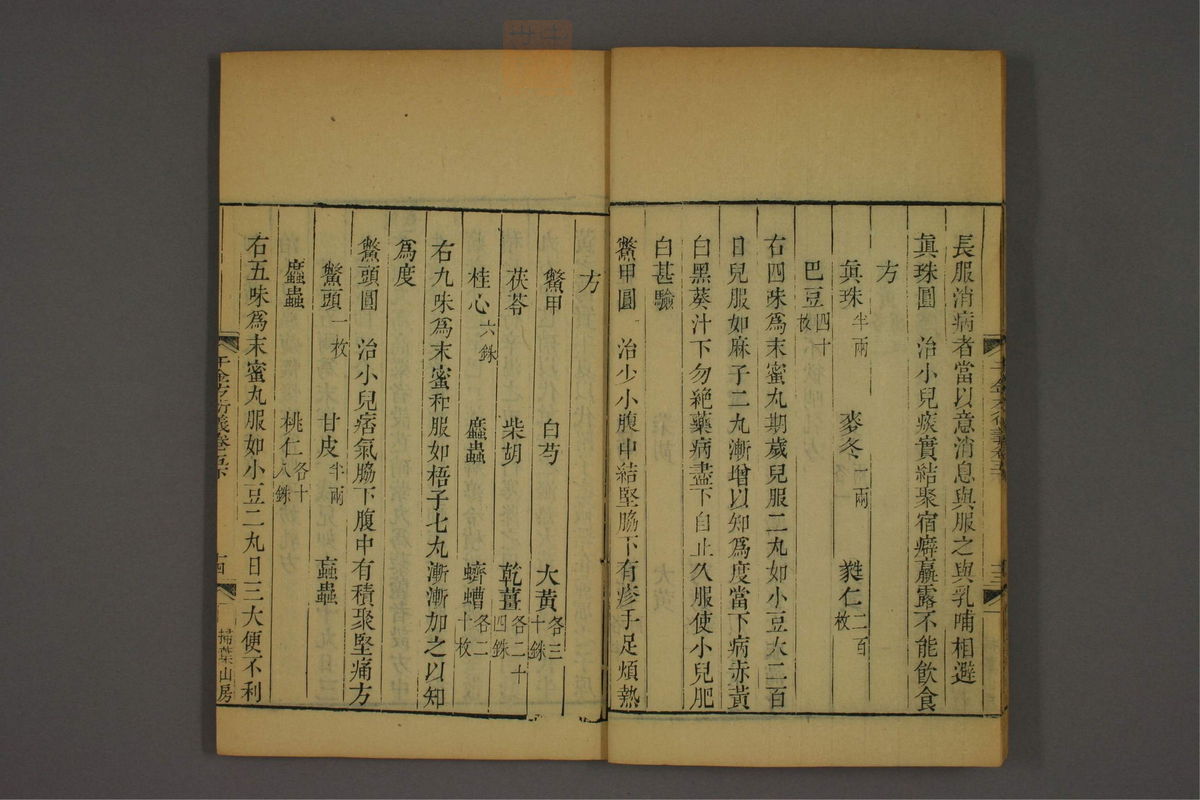 長服消病者當以意消息與服之與乳哺相避
眞珠圓　治小兒痰實結聚宿癖羸露不能飲食
方
眞珠半兩　麥冬一兩　甤仁二百枚
巴豆四十枚
右四味爲末蜜丸期歲兒服二丸如小豆大二百
日兒服如麻子二丸漸增以知爲度當下病赤黃
白黑葵汁下勿絶藥病盡下自止久服使小兒肥
白甚驗
鱉甲圓　治少小腹中結堅脇下有疹手足煩熱
方
鱉甲　白芍　大黃各三十銖
茯苓　柴胡　乾薑各二十四銖
桂心六銖　䗪蟲　蠐螬各二十枚
右九味爲末蜜和服如梧子七丸漸漸加之以知
爲度
鱉頭圓　治小兒痞氣脇下腹中有積聚堅痛方
鱉頭一枚　甘皮半兩　蝱蟲
䗪蟲　桃仁各十八銖
右五味爲末蜜丸服如小豆二丸日三大便不利
千金方衍義卷五下　十四　掃葉山房